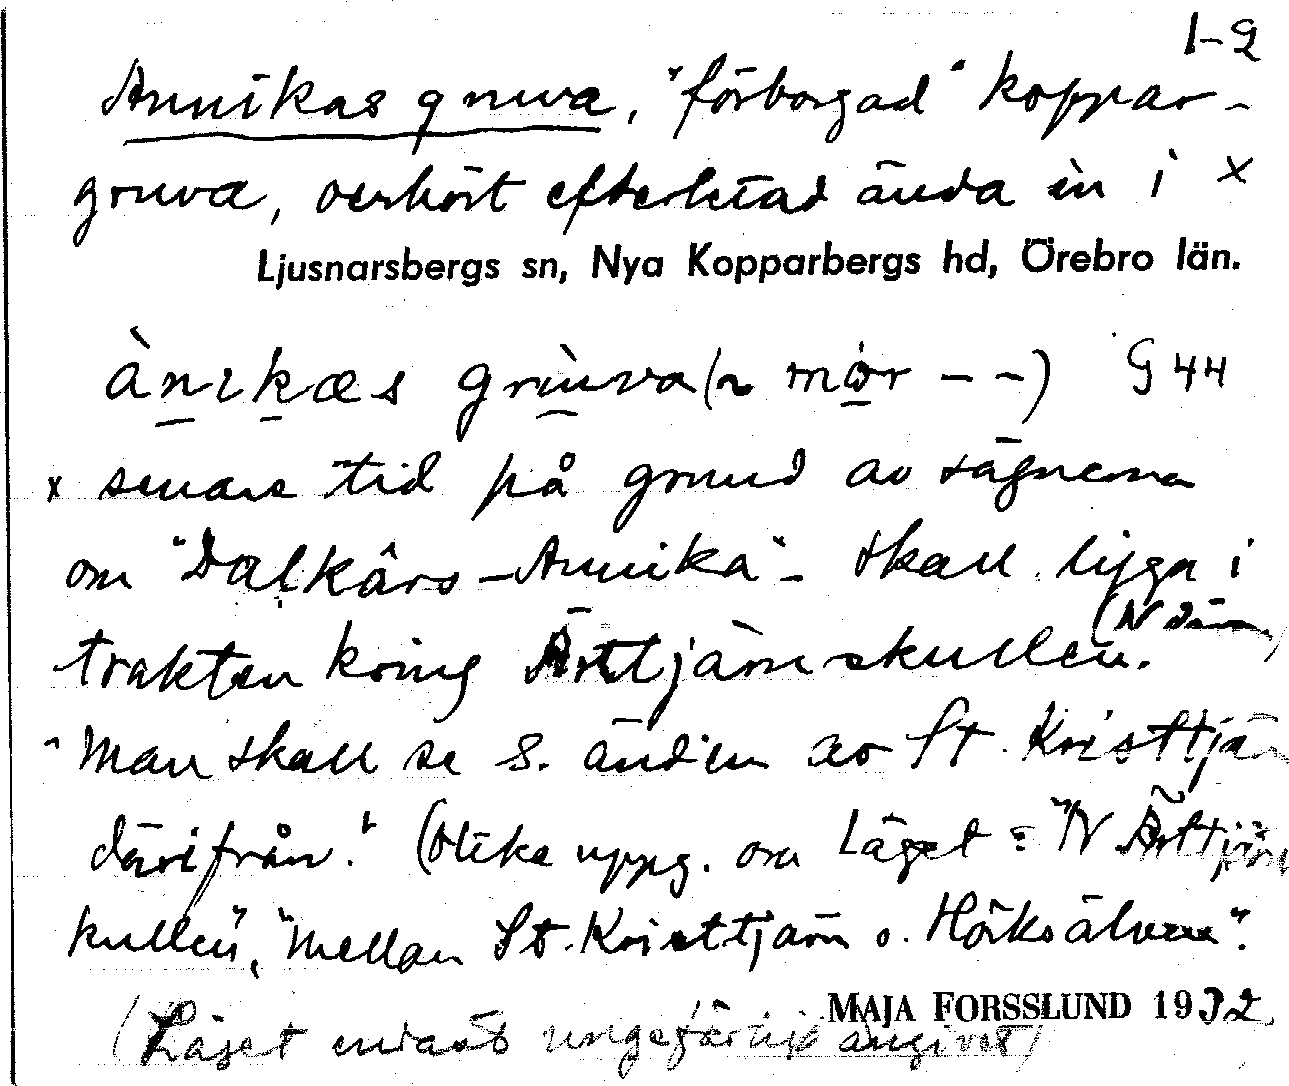 1-2
Annikas gruva, "förborgad" koppar-
gruva, oerhört efterletad ända in i x
Ljusnarsbergs sn, Nya Kopparbergs hd, Örebro län.
ànɩkæs grùva (~ mór - -) G 44
x senare tid på grund av sägnerna
om "Dalkårs-Annika" - skall ligga i
trakten kring Ärttjärnskullen.
(N däro
"Man skall se S. änd'en av St. Kristtjär
därifrån." (Olika uppg. om läget: "N Ärttjärns
kullen", "mellan St. Kristtjärn o. Hörksälven".
MAJA FORSSLUND 1932
(Läget endast ungefärligt angivet)